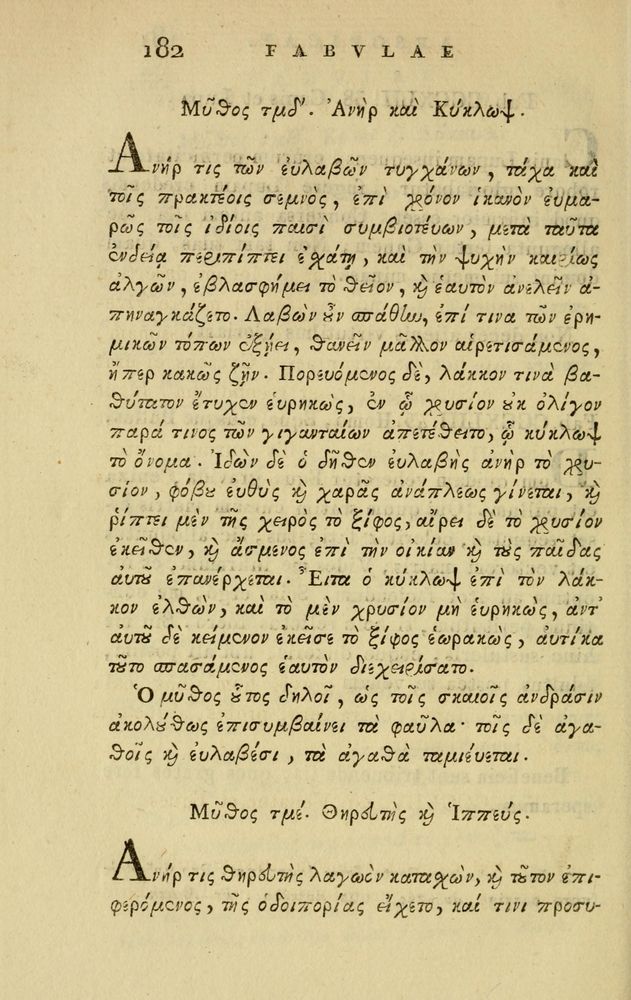 182 FABVLAE
Μῦθος τμδʹ. Ἀνὴρ καὶ Κύκλωψ.
Ἀνήρ τις τῶν ἐυλαβῶν τυγχάνων, τάχα καὶ
τοῖς πρακτέοις σεμνὸς, ἐπὶ χρόνον ἱκανὸν ἐυμα-
ρῶς τοῖς ἰδίοις παισὶ συμβιοτέυων, μετὰ ταῦτα
ἐνδείᾳ περιπίπτει ἐσχάτῃ, καὶ τὴν ψυχὴν καιρίως
ἀλγῶν, ἐβλασφήμει τὸ θεῖον, καὶ ἑαυτὸν ἀνελεῖν ἀ-
πηναγκάζετο. Λαβὼν οὖν σπάθην, ἐπί τινα τῶν ἐρη-
μικῶν τόπων ἐξῄει, θανεῖν μᾶλλον αἱρετισάμενος,
ἤπερ κακῶς ζῆν. Πορευόμενος δὲ, λάκκον τινὰ βα-
θύτατον ἔτυχεν ἑυρηκὼς, ἐν ᾧ χρυσίον οὐκ ὀλίγον
παρά τινος τῶν γιγανταίων ἀπετέθειτο, ᾧ κύκλωψ
τὸ ὄνομα. Ἰδὼν δὲ ὁ δῆθεν ἐυλαβὴς ἀνὴρ τὸ χρυ-
σίον, φόβου ἐυθὺς καὶ χαρᾶς ἀνάπλεως γίνεται, καὶ
ῥίπτει μὲν τῆς χειρὸς τὸ ξίφος, αἴρει δὲ τὸ χρυσίον
ἐκεῖθεν, καὶ ἄσμενος ἐπὶ τὴν οἰκίαν καὶ τοὺς παῖδας
ἀυτοῦ ἐπανέρχεται. Ἔιτα ὁ κύκλωψ ἐπὶ τὸν λάκ-
κον ἐλθὼν, καὶ τὸ μὲν χρυσίον μὴ ἑυρηκὼς, ἀντ'
ἀυτοῦ δὲ κείμενον ἐκεῖσε τὸ ξίφος ἑωρακὼς, ἀυτίκα
τοῦτο σπασάμενος ἑαυτὸν διεχειρίσατο.
Ὁ μῦθος οὗτος δηλοῖ, ὡς τοῖς σκαιοῖς ἀνδράσιν
ἀκολούθως ἐπισυμβαίνει τὰ φαῦλα· τοῖς δὲ ἀγα-
θοῖς καὶ ἐυλαβέσι, τὰ ἀγαθὰ ταμιέυεται.
Μῦθος τμέ. Θηρευτὴς καὶ Ἱππεύς.
Ἀνήρ τις θηρευτὴς λαγωὸν κατασχὼν, καὶ τοῦτον ἐπι-
φερόμενος, τῆς ὁδοιπορίας εἴχετο, καί τινι προσυ-